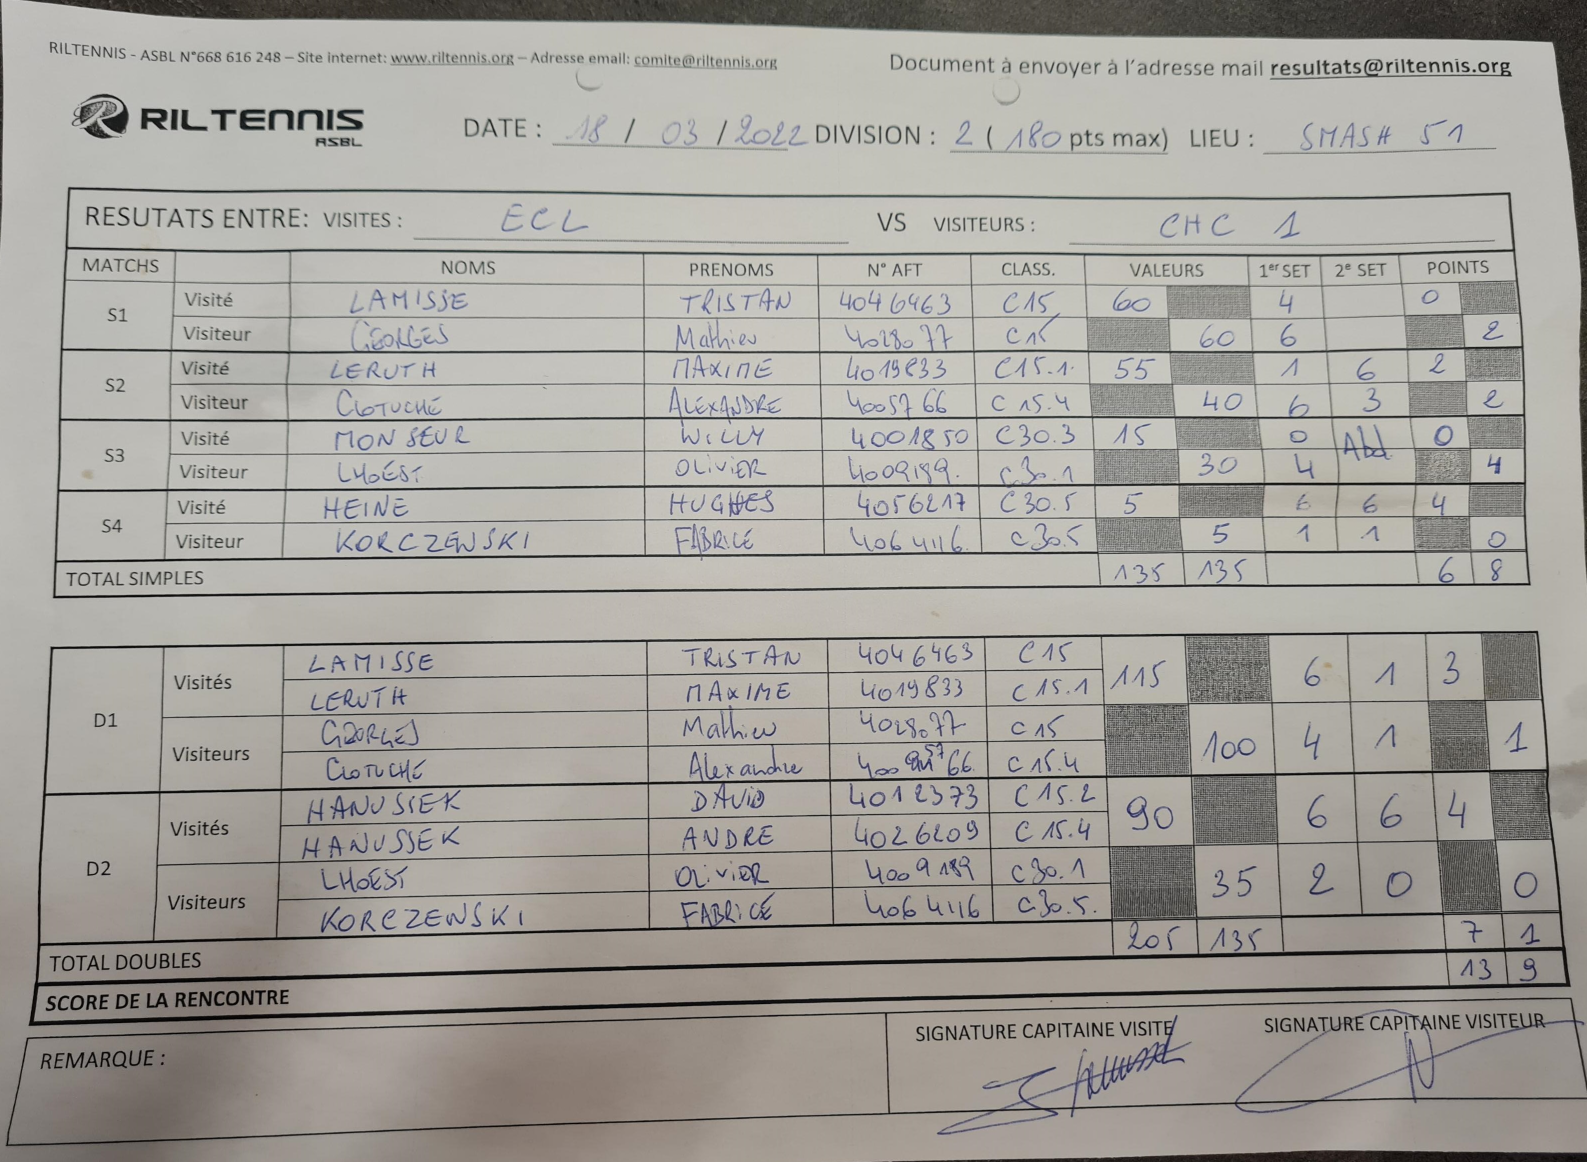 RILTENNIS - ASBL N°668 616 248 – Site internet: www.riltennis.org – Adresse email: comite@riltennis.org
Document à envoyer à l'adresse mail resultats@riltennis.org
RILTENNIS ASBL
DATE : 18 / 03 / 2022 DIVISION : 2 ( 180 pts max) LIEU : SMASH 51
RESUTATS ENTRE: VISITES : ECL VS VISITEURS : CHC 1
MATCHS NOMS PRENOMS N° AFT CLASS. VALEURS 1er SET 2e SET POINTS
S1 Visité LAMISSE TRISTAN 4046463 C15 60 4 0
Visiteur GEORGES Mathieu 4028077 C15 60 6 2
S2 Visité LERUTH MAXIME 4019833 C15.1. 55 1 6 2
Visiteur CLOTUCHE ALEXANDRE 4005766 C 15.4 40 6 3 2
S3 Visité MONSEUR WILLY 4001850 C30.3 15 0 Abd. 0
Visiteur LHOEST OLIVIER 4009189. C30.1 30 4 4
S4 Visité HEINE HUGHES 4056217 C30.5 5 6 6 4
Visiteur KORCZEWSKI FABRICE 4064116. C30.5 5 1 1 0
TOTAL SIMPLES 135 135 6 8
D1 Visités LAMISSE TRISTAN 4046463 C15 115 6 1 3
LERUTH MAXIME 4019833 C15.1
Visiteurs GEORGES Mathieu 4028077 C15 100 4 1 1
CLOTUCHE Alexandre 4005766. C15.4
D2 Visités HANUSSEK DAVID 4012373 C15.2 90 6 6 4
HANUSSEK ANDRE 4026209 C15.4
Visiteurs LHOEST OLIVIER 4009189 C30.1 35 2 0 0
KORCZEWSKI FABRICE 4064116 C30.5.
TOTAL DOUBLES 205 135 7 1
SCORE DE LA RENCONTRE 13 9
REMARQUE : SIGNATURE CAPITAINE VISITE SIGNATURE CAPITAINE VISITEUR